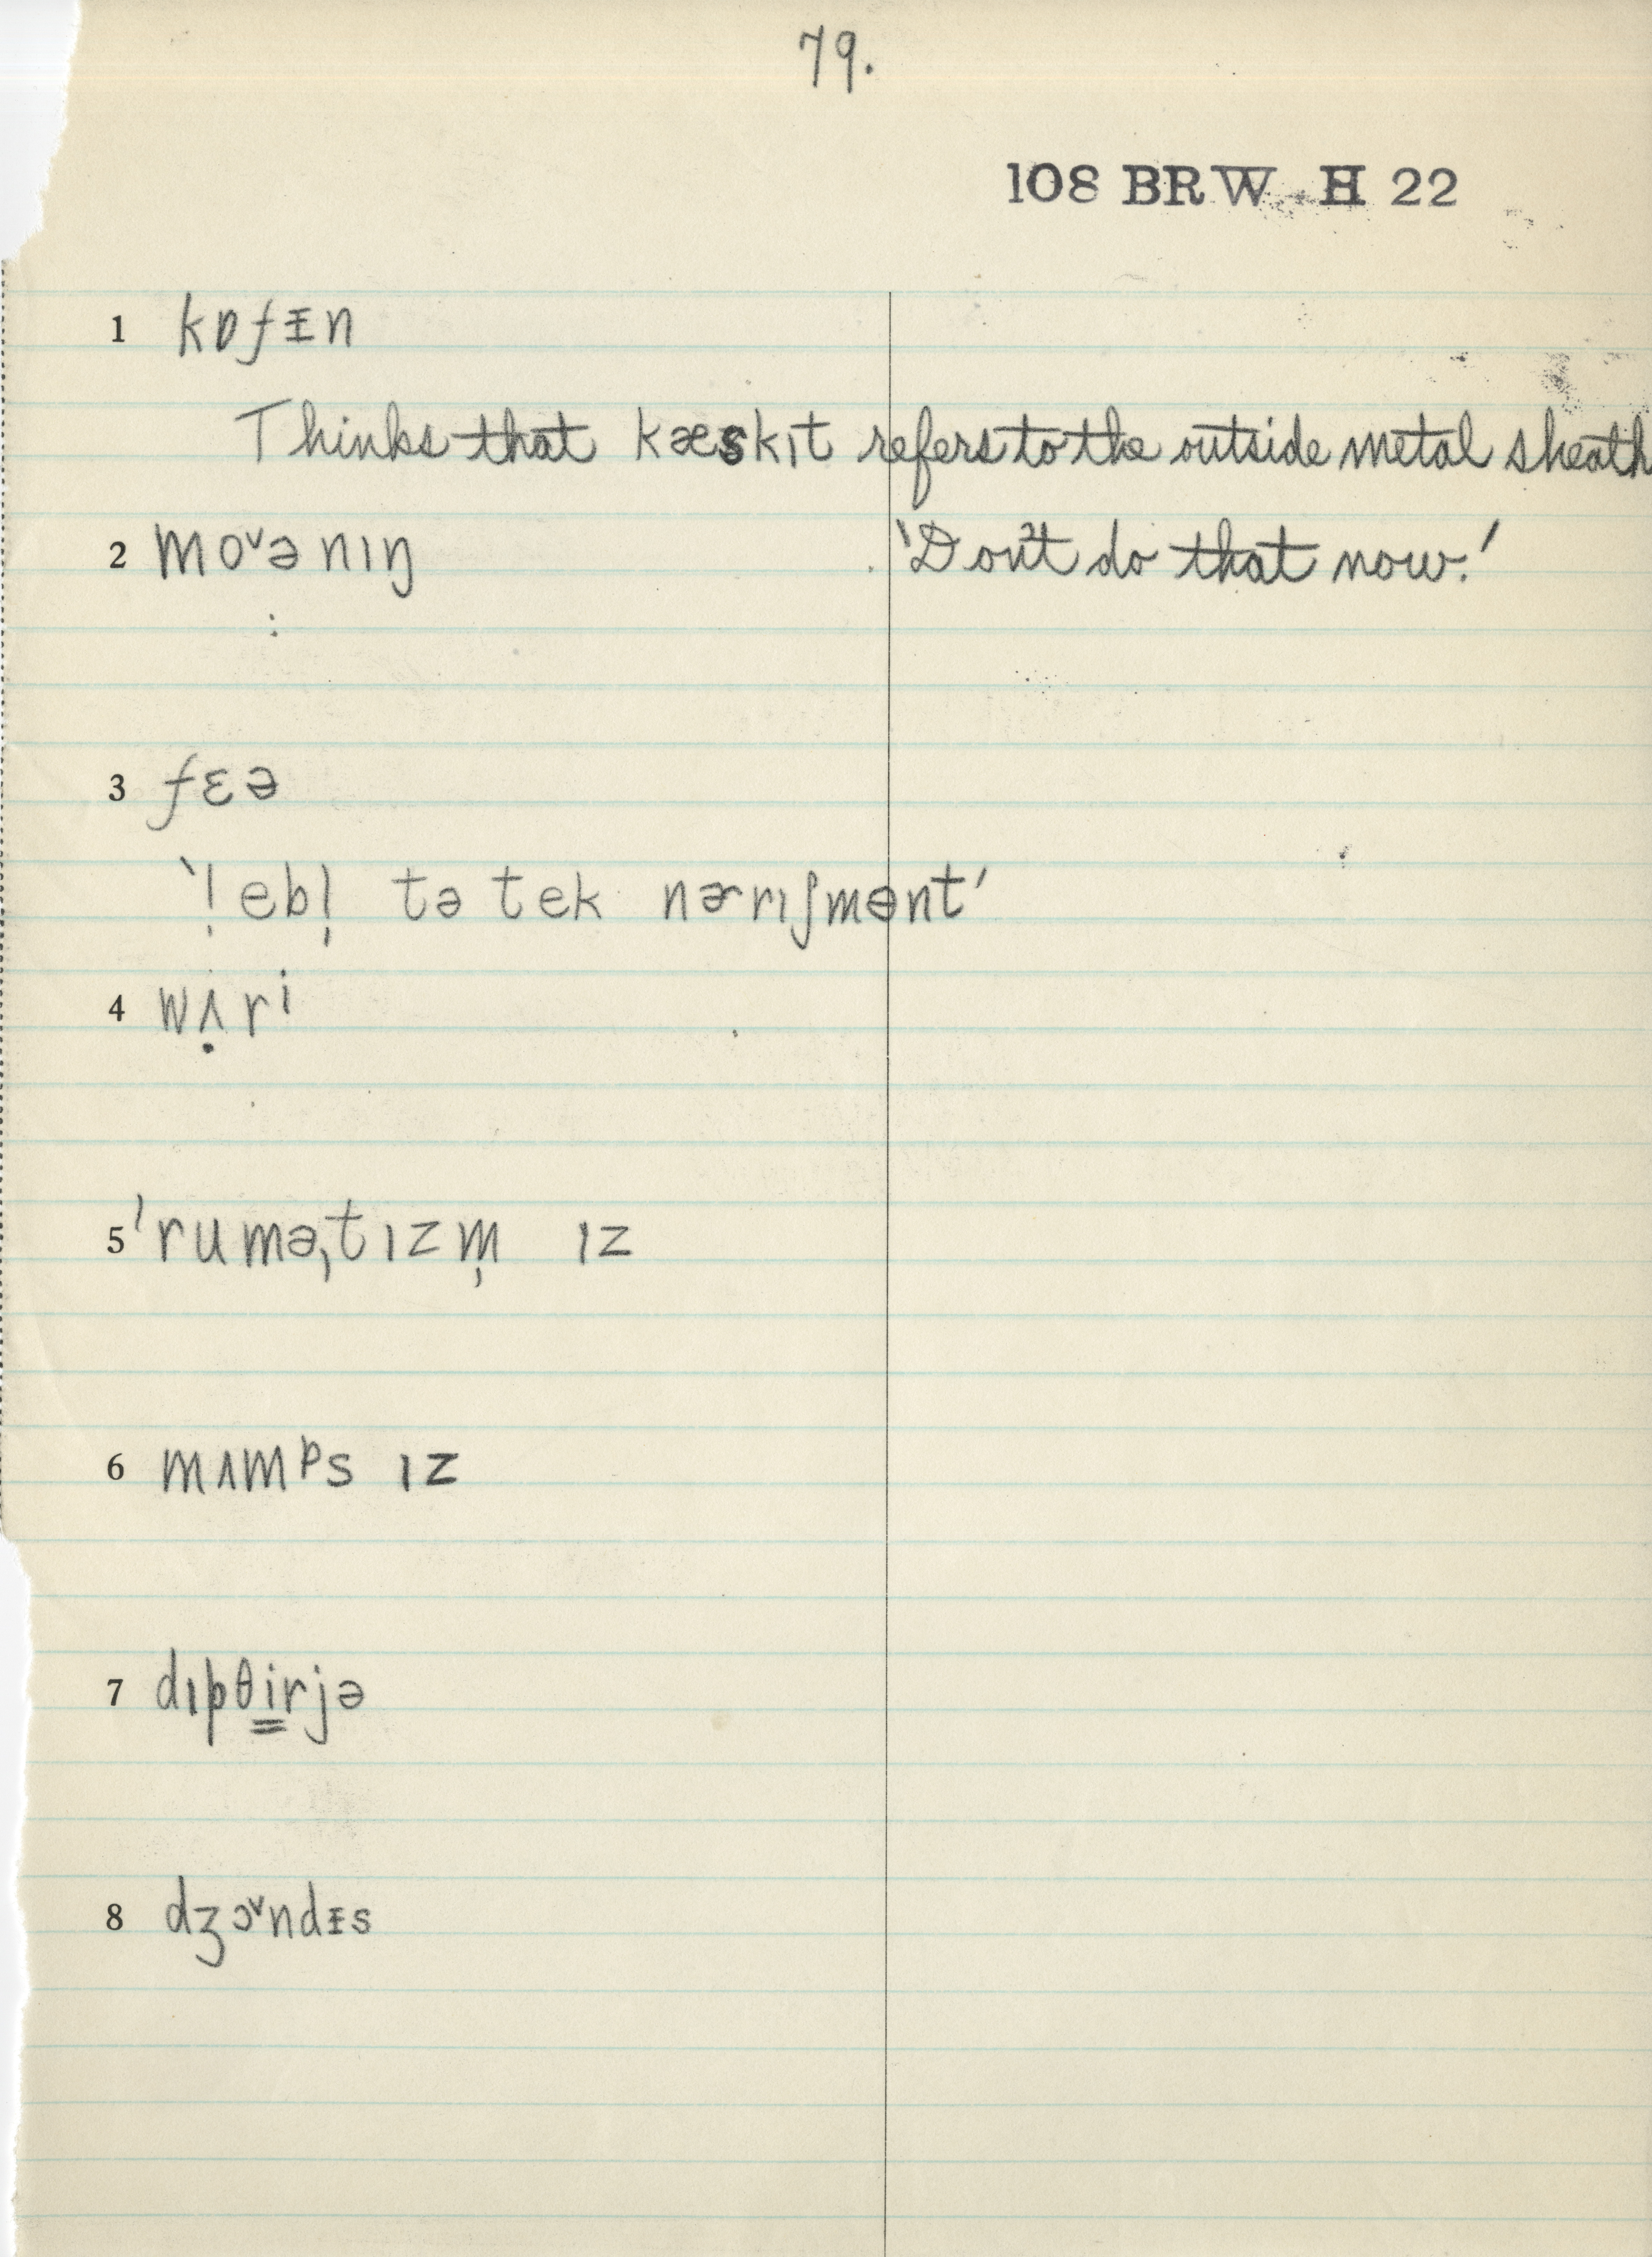 79.
108 BRW H 22
1 kɒfᵻn
Thinks that kæskɪt refers to the outside metal sheath
2 moᵛənɪŋ 'Don't do that now.'
3 fɛə
'!ebl̩ tə tek nɚrɪʃmənt'
4 wʌ̣rⁱ
5 ˈruməˌtɪzm̩ ɪz
6 mʌmᵖs ɪz
7 dɪpθi̳rjə
8 dʒɔᵛndᵻs